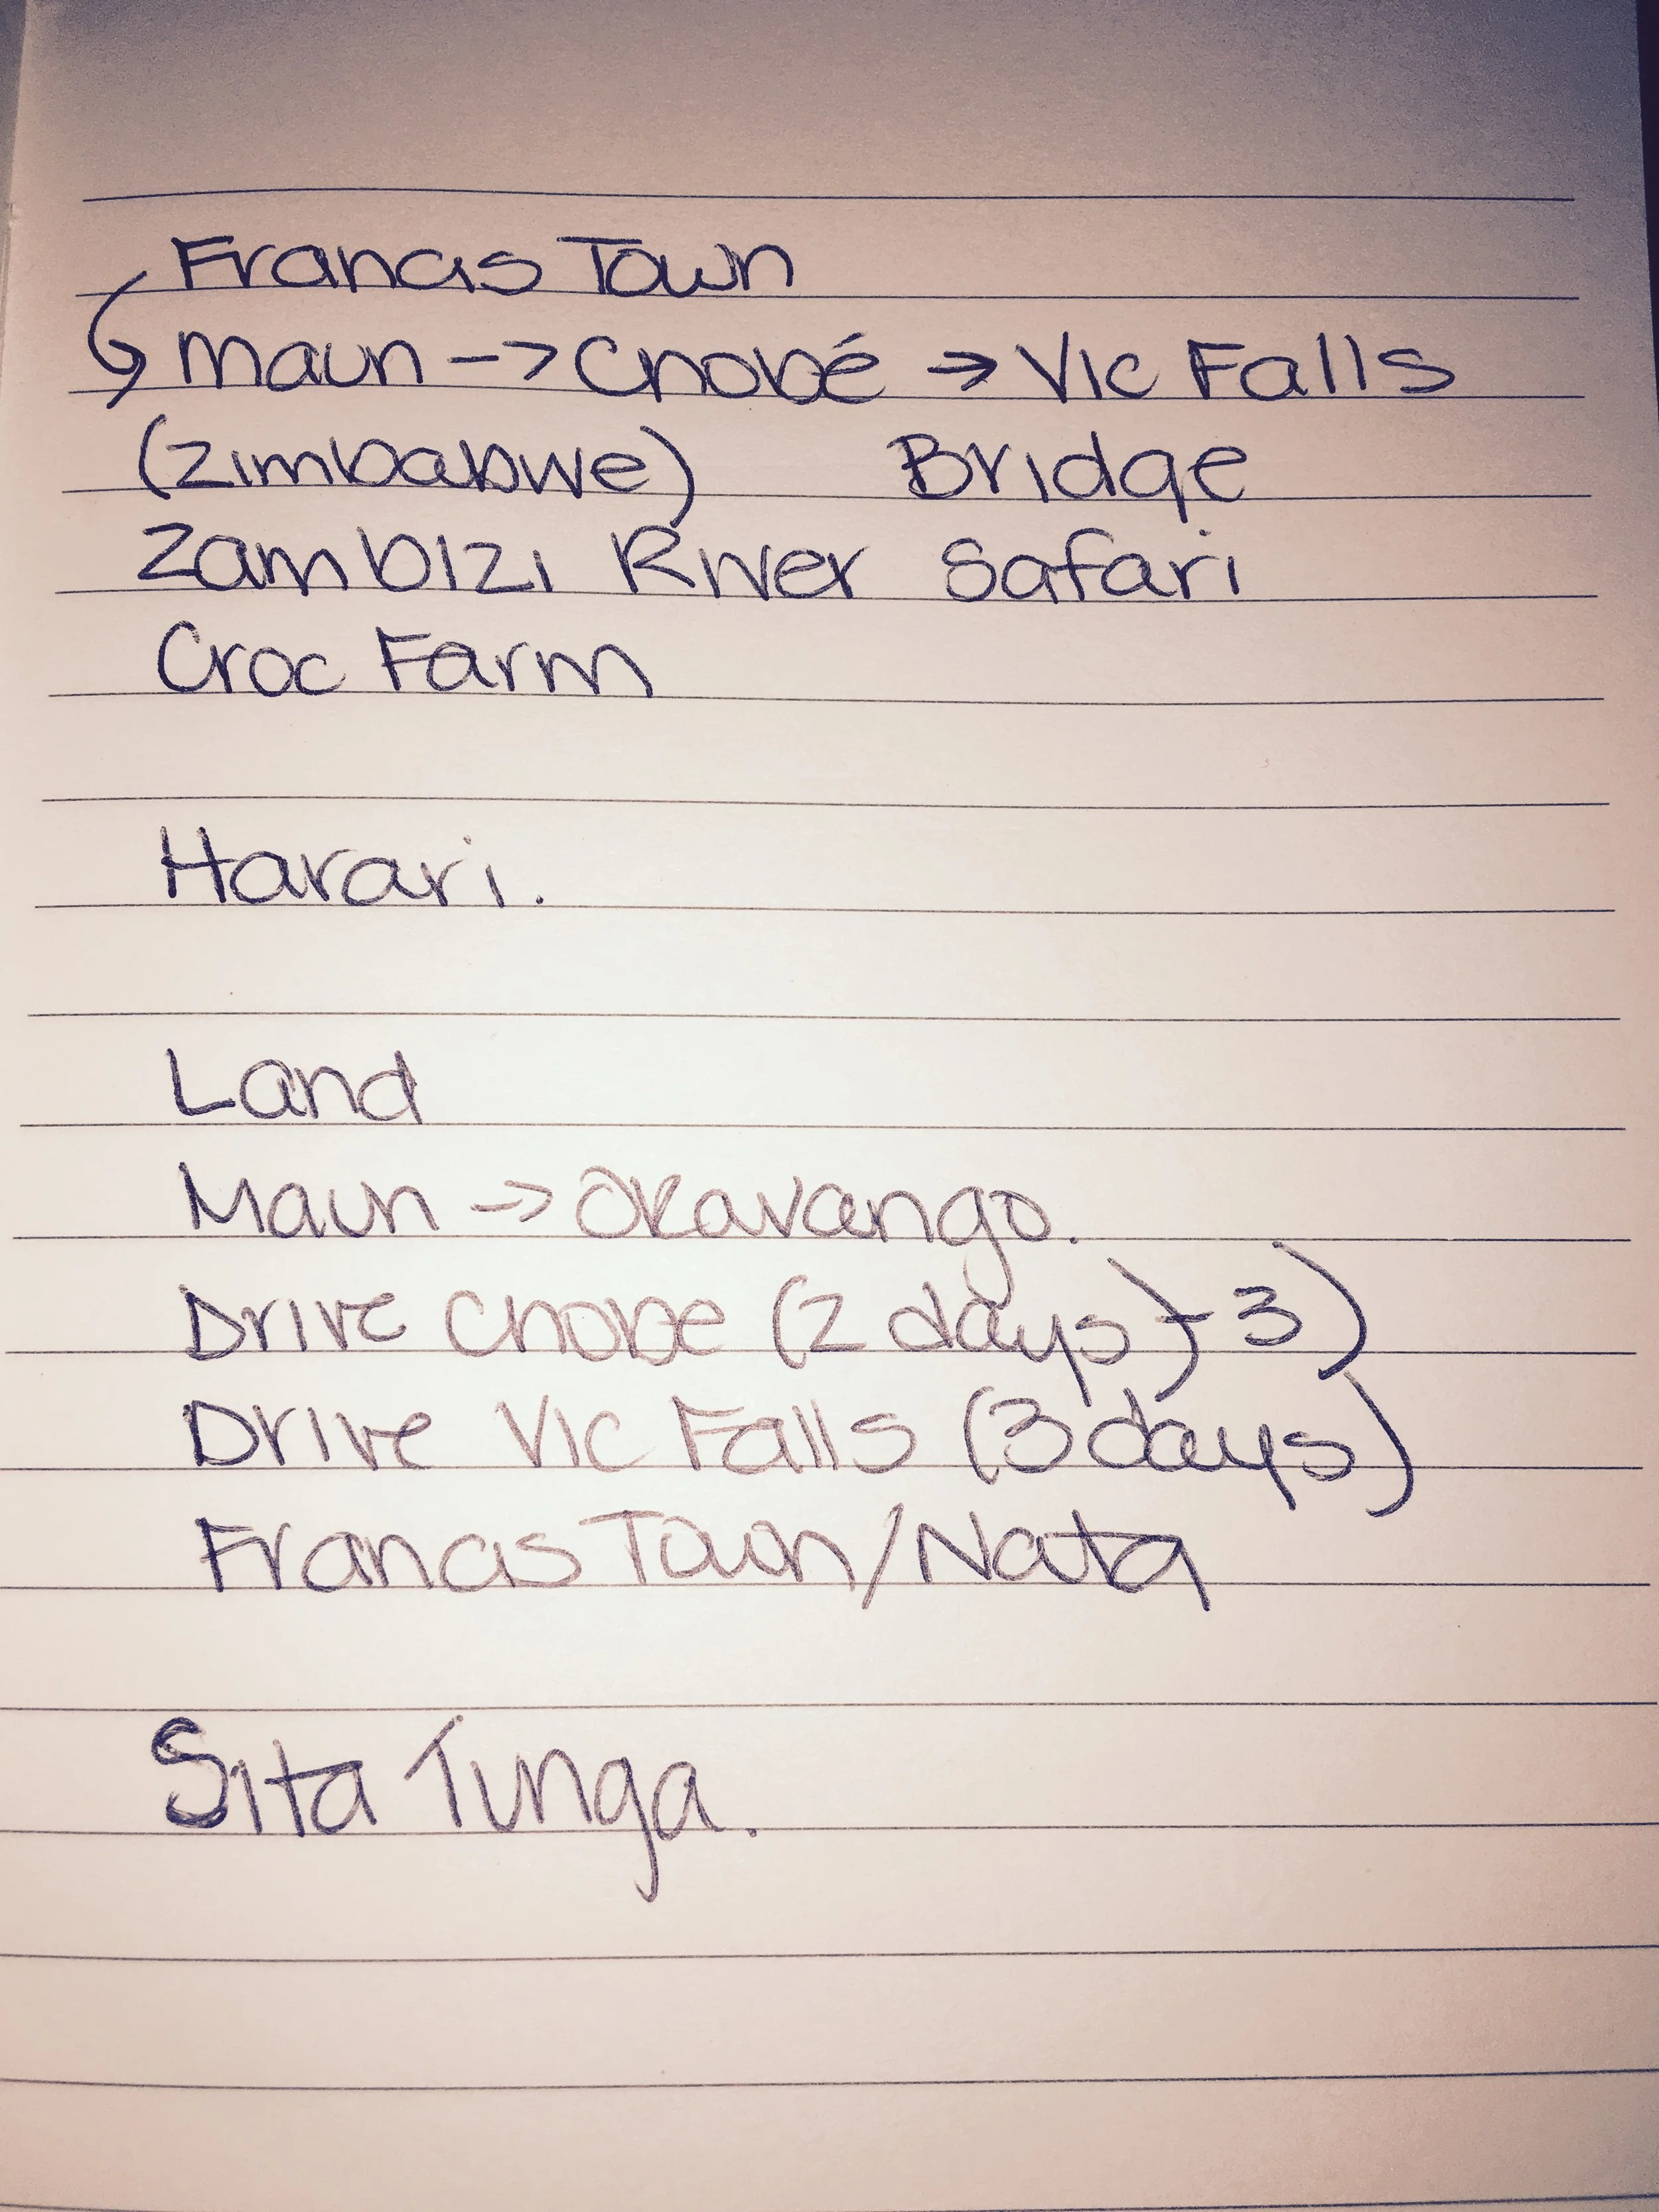 Francis Town
Maun -> Chobé → Vic Falls
(Zimbabwe) Bridge
Zambizi River Safari
Croc Farm
Harari.
Land
Maun -> Okavango.
Drive Chobe (2 days)-3)
Drive Vic Falls (3 days)
Francis Town/Nata
Sita Tunga.